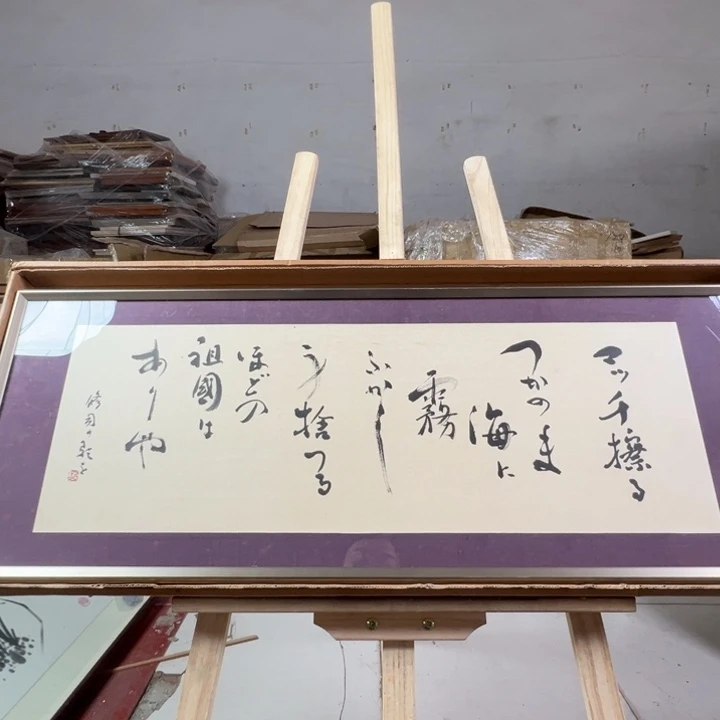 マッチ擦る
つかのま
海に
霧
ふかし
身捨つる
ほどの
祖國は
ありや
修司の歌を